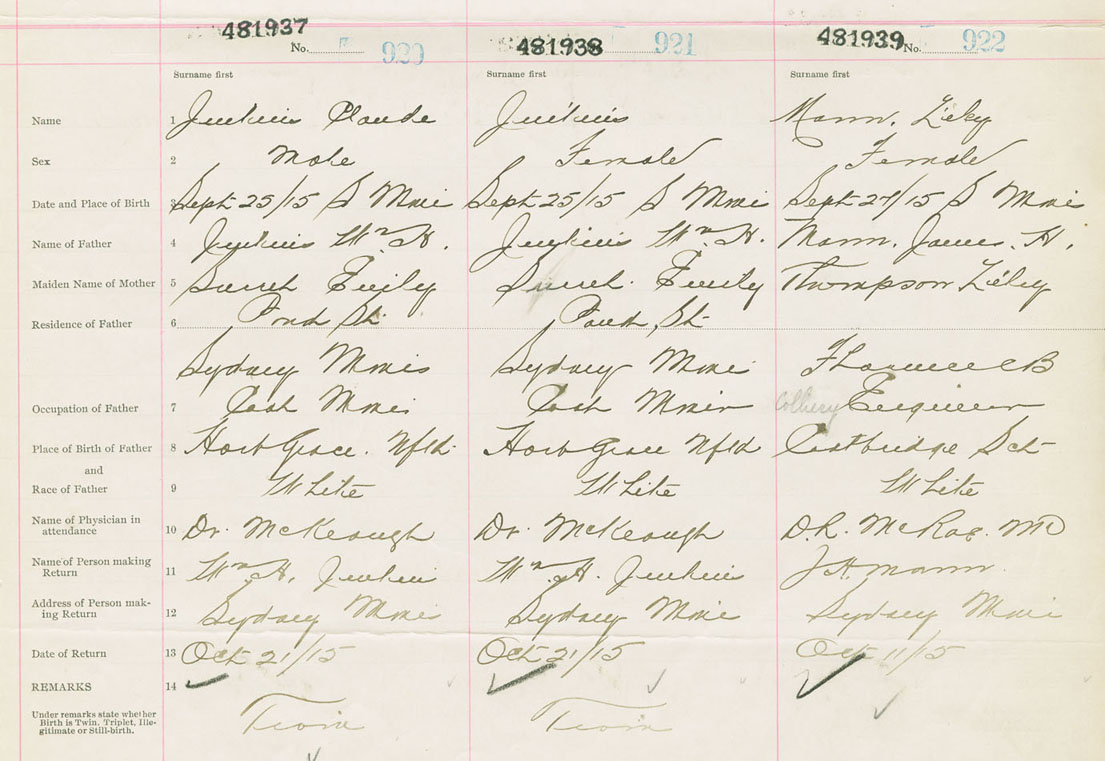 481937 481938 481939
No. 920 921 No. 922
Surname first Surname first Surname first
Name 1 Jenkins Claude Jenkins Mann, 
Sex 2 Male Female Female
Date and Place of Birth 3 Sept 25/15 S Mines Sept 25/15 S Mines Sept 27/15 S Mines
Name of Father 4 Jenkins Wm H. Jenkins Wm H. Mann, James. H.
Maiden Name of Mother 5 Emily Emily Thompson
Residence of Father 6 St St
Sydney Mines Sydney Mines Florence CB
Occupation of Father 7 Mines Colliery Engineer
Place of Birth of Father 8 Harb Grace. Nfld. Harb Grace Nfld Coatbridge Sct
and
Race of Father 9 White White White
Name of Physician in
attendance 10 Dr. McKeough Dr. McKeough McRae. MD
Name of Person making
Return 11 Wm H. Jenkins Wm H. Jenkins J H Mann.
Address of Person mak-
ing Return 12 Sydney Mines Sydney Mines Sydney Mines
Date of Return 13 Oct 21/15 Oct 21/15 Oct 11/15
REMARKS 14
Under remarks state whether
Birth is Twin, Triplet, Ille-
gitimate or Still-birth.
Twin Twin